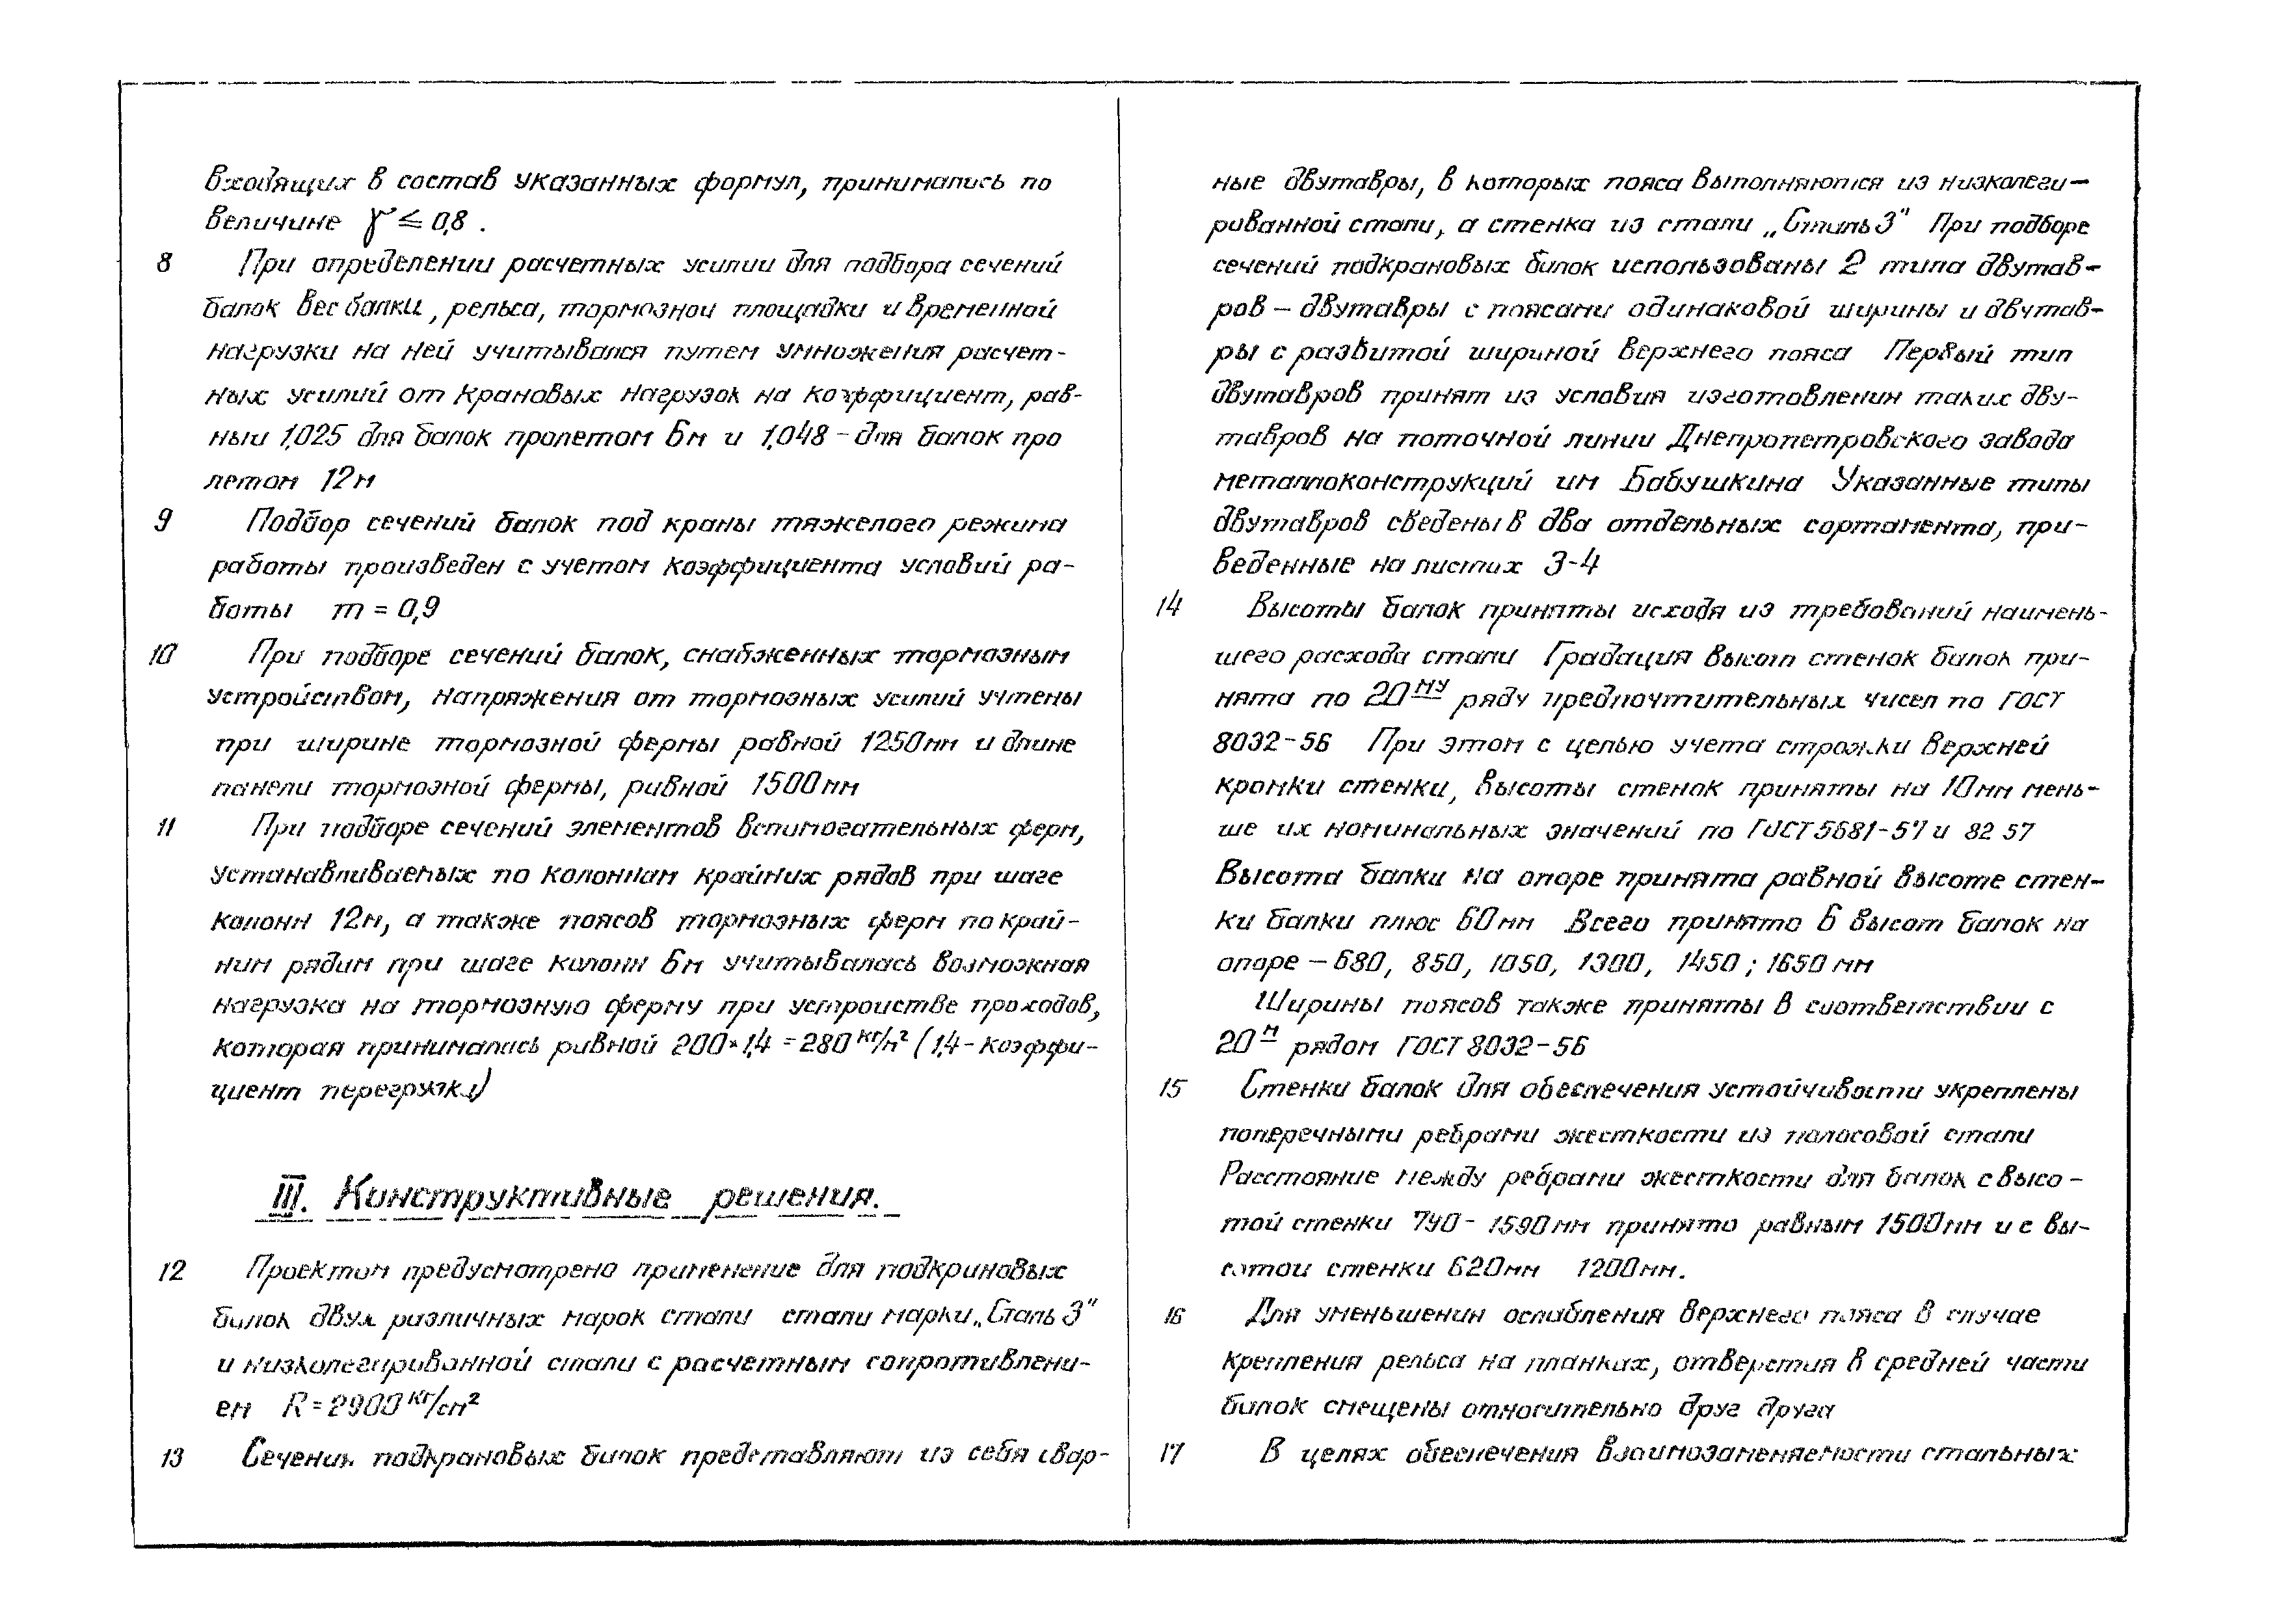 входящих в состав указанных формул, принимались по
величине γ ≤ 0,8 .
8 При определении расчетных усилий для подбора сечений
балок вес балки, рельса, тормозной площадки и временной
нагрузки на ней учитывался путем умножения расчет-
ных усилий от крановых нагрузок на коэффициент, рав-
ный 1,025 для балок пролетом 6м и 1,048 - для балок про
летом 12м
9 Подбор сечений балок под краны тяжелого режима
работы произведен с учетом коэффициента условий ра-
боты m = 0,9
10 При подборе сечений балок, снабженных тормозным
устройством, напряжения от тормозных усилий учтены
при ширине тормозной фермы равной 1250мм и длине
панели тормозной фермы, равной 1500мм
11 При подборе сечений элементов вспомогательных ферм,
устанавливаемых по колоннам крайних рядов при шаге
колонн 12м, а также поясов тормозных ферм по край-
ним рядам при шаге колонн 6м учитывалась возможная
нагрузка на тормозную ферму при устройстве проходов,
которая принималась равной 200×1,4 = 280 кг/м² (1,4 - коэффи-
циент перегрузки)
III. Конструктивные решения.
12 Проектом предусмотрено применение для подкрановых
балок двух различных марок стали стали марки „Сталь 3“
и низколегированной стали с расчетным сопротивлени-
ем R = 2900 кг/см²
13 Сечения подкрановых балок представляют из себя свар-
ные двутавры, в которых пояса выполняются из низколеги-
рованной стали, а стенка из стали „Сталь 3“ При подборе
сечений подкрановых балок использованы 2 типа двутав-
ров - двутавры с поясами одинаковой ширины и двутав-
ры с развитой шириной верхнего пояса Первый тип
двутавров принят из условия изготовления таких дву-
тавров на поточной линии Днепропетровского завода
металлоконструкций им Бабушкина Указанные типы
двутавров сведены в два отдельных сортамента, при-
веденные на листах 3-4
14 Высоты балок приняты исходя из требований наимень-
шего расхода стали Градация высот стенок балок при-
нята по 20му ряду предпочтительных чисел по ГОСТ
8032-56 При этом с целью учета строжки верхней
кромки стенки, высоты стенок приняты на 10мм мень-
ше их номинальных значений по ГОСТ 5681-57 и 82 57
Высота балки на опоре принята равной высоте стен-
ки балки плюс 60мм Всего принято 6 высот балок на
опоре - 680, 850, 1050, 1300, 1450; 1650 мм
Ширины поясов также приняты в соответствии с
20м рядом ГОСТ 8032-56
15 Стенки балок для обеспечения устойчивости укреплены
поперечными ребрами жесткости из полосовой стали
Расстояние между ребрами жесткости для балок с высо-
той стенки 790 - 1590мм принято равным 1500мм и с вы-
сотой стенки 620мм 1200мм.
16 Для уменьшения ослабления верхнего пояса в случае
крепления рельса на планках, отверстия в средней части
балок смещены относительно друг друга
17 В целях обеспечения взаимозаменяемости стальных